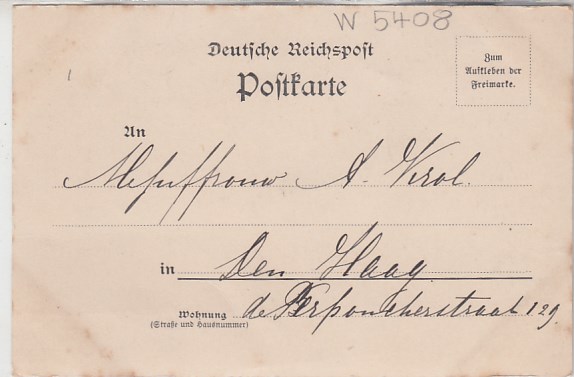 W 5408
Deutsche Reichspost
Postkarte
Zum
Aufkleben der
Freimarke.
An
Mejuffrouw A. Krol.
in Den Haag
Wohnung de Perponcherstraat 129.
(Straße und Hausnummer)